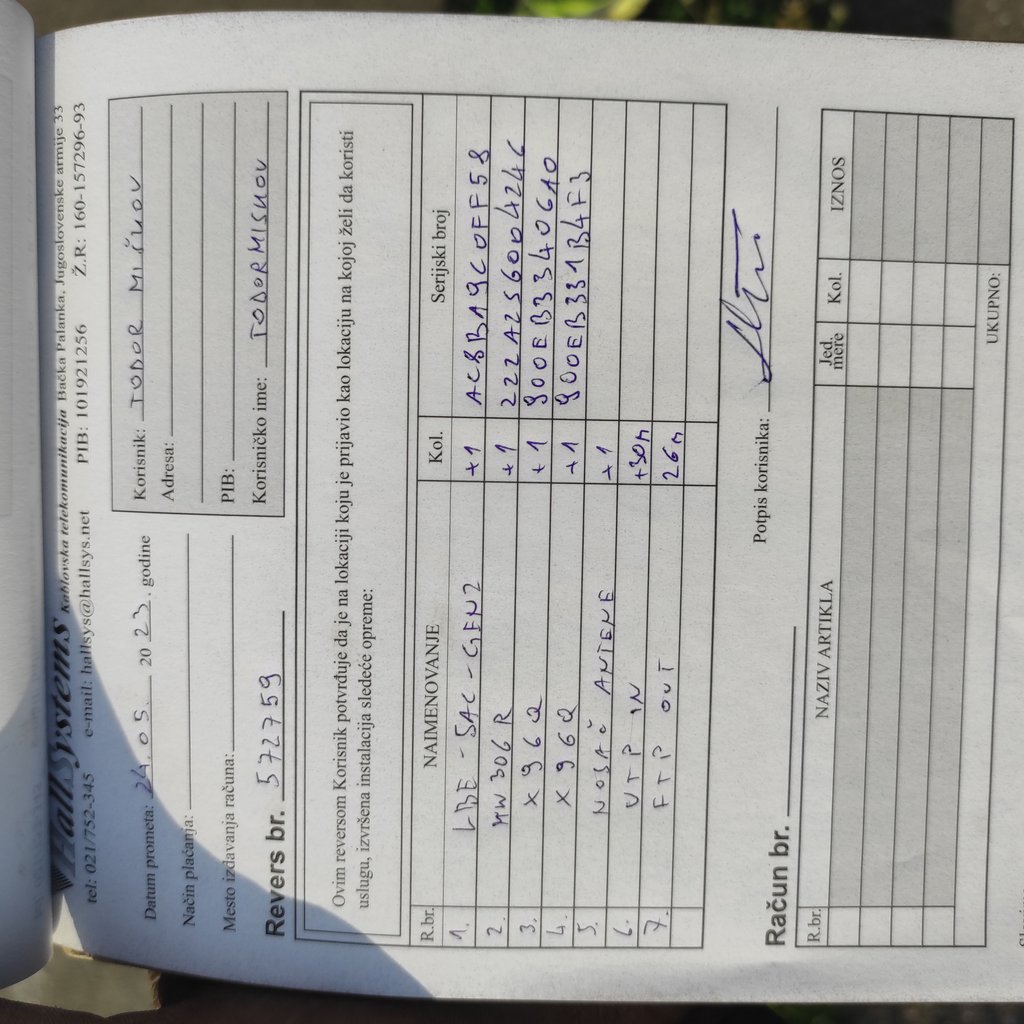 HallSystems Kablovska telekomunikacija Bačka Palanka, Jugoslovenske armije 33
tel: 021/752-345 e-mail: hallsys@hallsys.net PIB: 101921256 Ž.R: 160-157296-93
Datum prometa: 24.05. 2023. godine
Način plaćanja:
Mesto izdavanja računa:
Revers br. 572759
Korisnik: TODOR MIŠKOV
Adresa:
PIB:
Korisničko ime: TODORMISKOV
Ovim reversom Korisnik potvrđuje da je na lokaciji koju je prijavio kao lokaciju na kojoj želi da koristi
uslugu, izvršena instalacija sledeće opreme:
R.br. NAIMENOVANJE Kol. Serijski broj
1. LBE-5AC-GEN2 +1 AC8BA9C0FF58
2. MW306R +1 222A2S6004246
3. X96Q +1 900EB3340610
4. X96Q +1 900EB331B4F3
5. NOSAČ ANTENE +1
6. UTP IN +30m
7. FTP OUT 26m
Potpis korisnika:
Račun br.
R.br. NAZIV ARTIKLA Jed. mere Kol. IZNOS
UKUPNO: